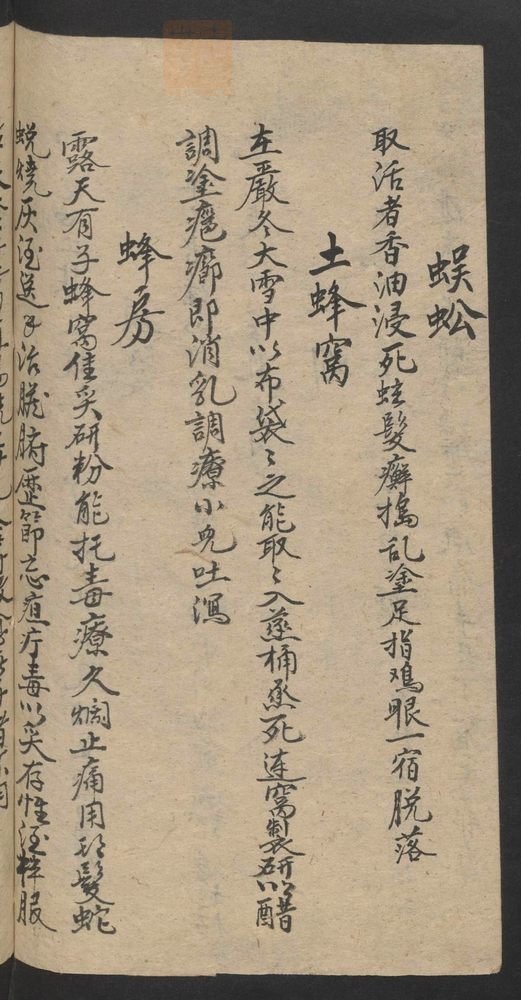 蜈蚣
取活者香油浸死蛀髮癬搗乱塗足指鸡眼一宿脱落
土蜂窩
在嚴冬大雪中以布袋〻之能取〻入蒸桶蒸死連窩製研以醋
調塗疤癤即消乳調療小児吐瀉
蜂房
露天有子蜂窩佳炙研粉能托毒療久痢止痛用乱髮蛇
蜕燒灰酒送下治臟腑歷節忘疽疔毒以炙存性酒拌服